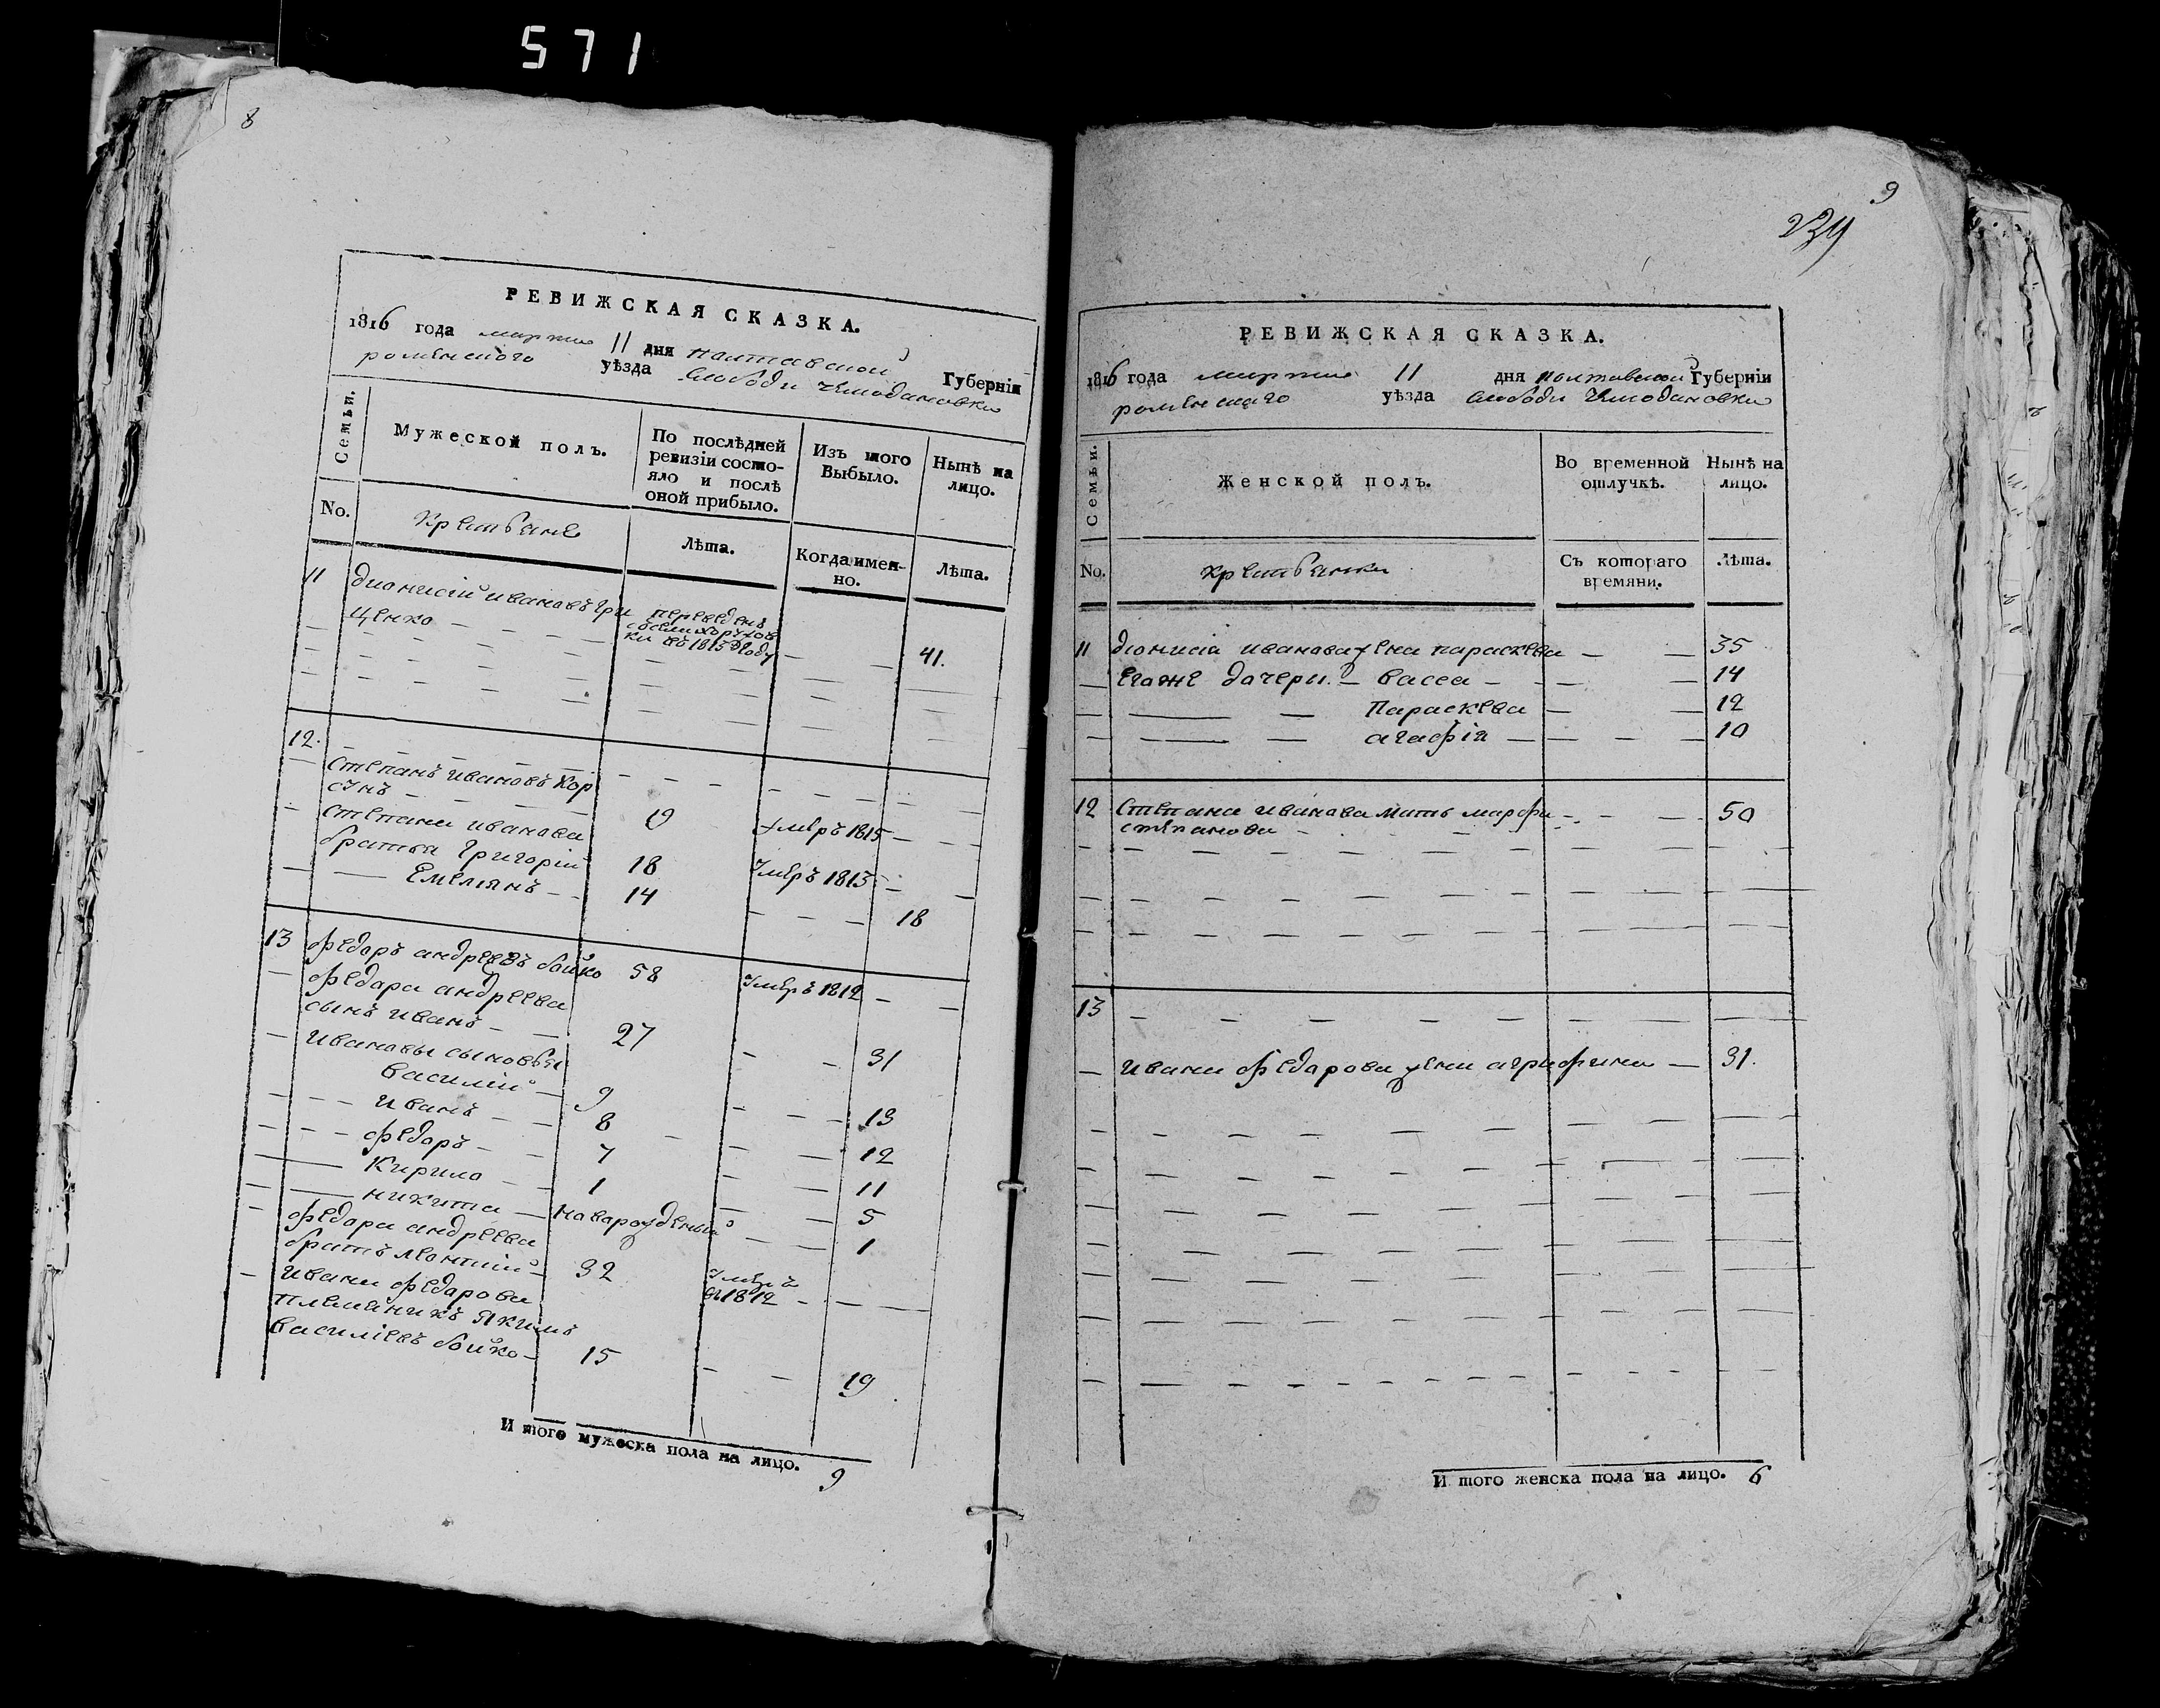 571
8
РЕВИЖСКАЯ СКАЗКА.
1816 года марта 11 дня полтавской Губерніи
роменского уѣзда слободи Чемодановки
Семьи.
Мужеской полъ.
По послѣдней ревизіи состояло и послѣ оной прибыло.
Изъ того Выбыло.
Нынѣ на лицо.
No.
Крестьяне
Лѣта.
Когда именно.
Лѣта.
11 дионисій ивановъ гри
ценко
переведенъ
ки въ 1813 году
41.
12.
степанъ ивановъ кор
сунъ
19 умеръ 1815
степана иванова
братья григорій 18 умеръ 1813
емелянъ 14 18
13 федоръ андреевъ бойко 58 умеръ 1812
федора андреева
сынъ иванъ 27 31
ивановы сыновья
василій 9 13
иванъ 8 12
федоръ 7 11
Кирило 1 5
никита новорожденый 1
федора андреева
братъ леонтій 32 умеръ
въ 1812
ивана федорова
племеникъ якимъ
василіевъ бойко 15 19
И того мужеска пола на лицо. 9
9
239
РЕВИЖСКАЯ СКАЗКА.
1816 года марта 11 дня полтавской Губерніи
роменскаго уѣзда слободи Чемодановки
Семьи.
Женской полъ.
Во временной отлучкѣ.
Нынѣ на лицо.
No.
крестьянки
Съ котораго времяни.
Лѣта.
11 дионисія иванова жена параскева 35
его же дочери васса 14
Параскева 12
агафія 10
12 степана иванова мать марфа 50
степанова
13
ивана федорова жена агрифина 31.
И того женска пола на лицо. 6